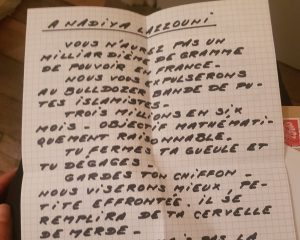 A NADIYA LAZZOUNI
VOUS N'AUREZ PAS UN
MILLIARDIÈME DE GRAMME
DE POUVOIR EN FRANCE.
NOUS VOUS EXPULSERONS
AU BULLDOZER BANDE DE PU-
TES ISLAMISTES.
TROIS MILLIONS EN SIX
MOIS - OBJECTIF MATHÉMATI-
QUEMENT RAISONNABLE.
TU FERMES TA GUEULE ET
TU DÉGAGES -
GARDES TON CHIFFON -
NOUS VISERONS MIEUX, PE-
TITE EFFRONTÉE. IL SE
REMPLIRA DE TA CERVELLE
DE MERDE -
PAS LA